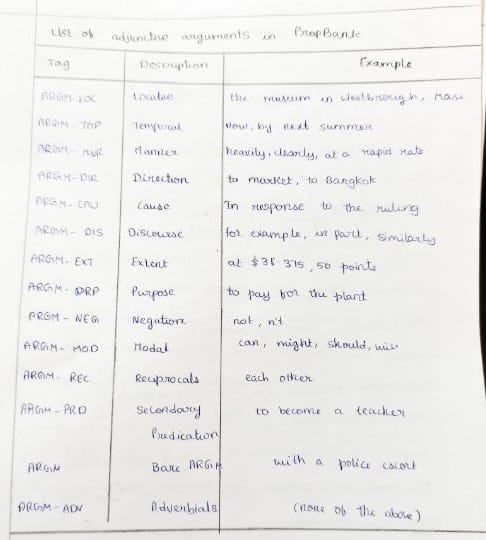 List of adjunctive arguments in PropBank
Tag Description Example
ARGM-LOC Locative the museum in Westbrough, Mass.
ARGM-TMP Temporal now, by next summer
ARGM-MNR Manner heavily, clearly, at a rapid rate
ARGM-DIR Direction to market, to Bangkok
ARGM-CAU Cause In response to the ruling
ARGM-DIS Discourse for example, in part, similarly
ARGM-EXT Extent at $38.375, 50 points
ARGM-PRP Purpose to pay for the plant
ARGM-NEG Negation not, n't
ARGM-MOD Modal can, might, should, will
ARGM-REC Reciprocals each other
ARGM-PRD Secondary to become a teacher
Predication
ARGM Bare ARGM with a police escort
ARGM-ADV Adverbials (none of the above)